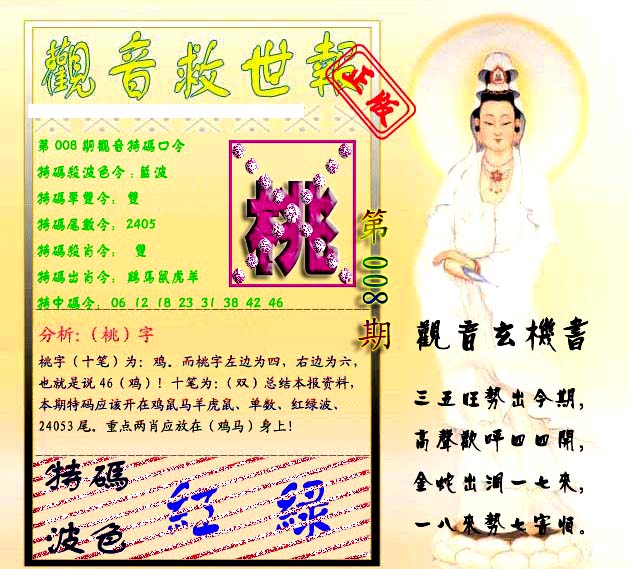 觀音救世報
正版
第 008 期觀音特碼口令
特碼殺波色令：藍波
特碼單雙令： 雙
特碼尾數令： 2405
特碼殺肖令： 雙
特碼出肖令： 鷄馬鼠虎羊
特中碼令： 06 12 18 23 31 38 42 46
桃
第 008 期
分析:（桃）字
桃字（十笔）为：鸡。而桃字左边为四，右边为六，
也就是说 46（鸡）！十笔为：（双）总结本报资料，
本期特码应该开在鸡鼠马羊虎鼠、单数、红绿波、
24053 尾。重点两肖应放在（鸡马）身上！
特碼
波色
紅 綠
觀音玄機書
三五旺勢出今期，
高聲歡呼四四開，
金蛇出洞一七來，
一八來勢七客順。